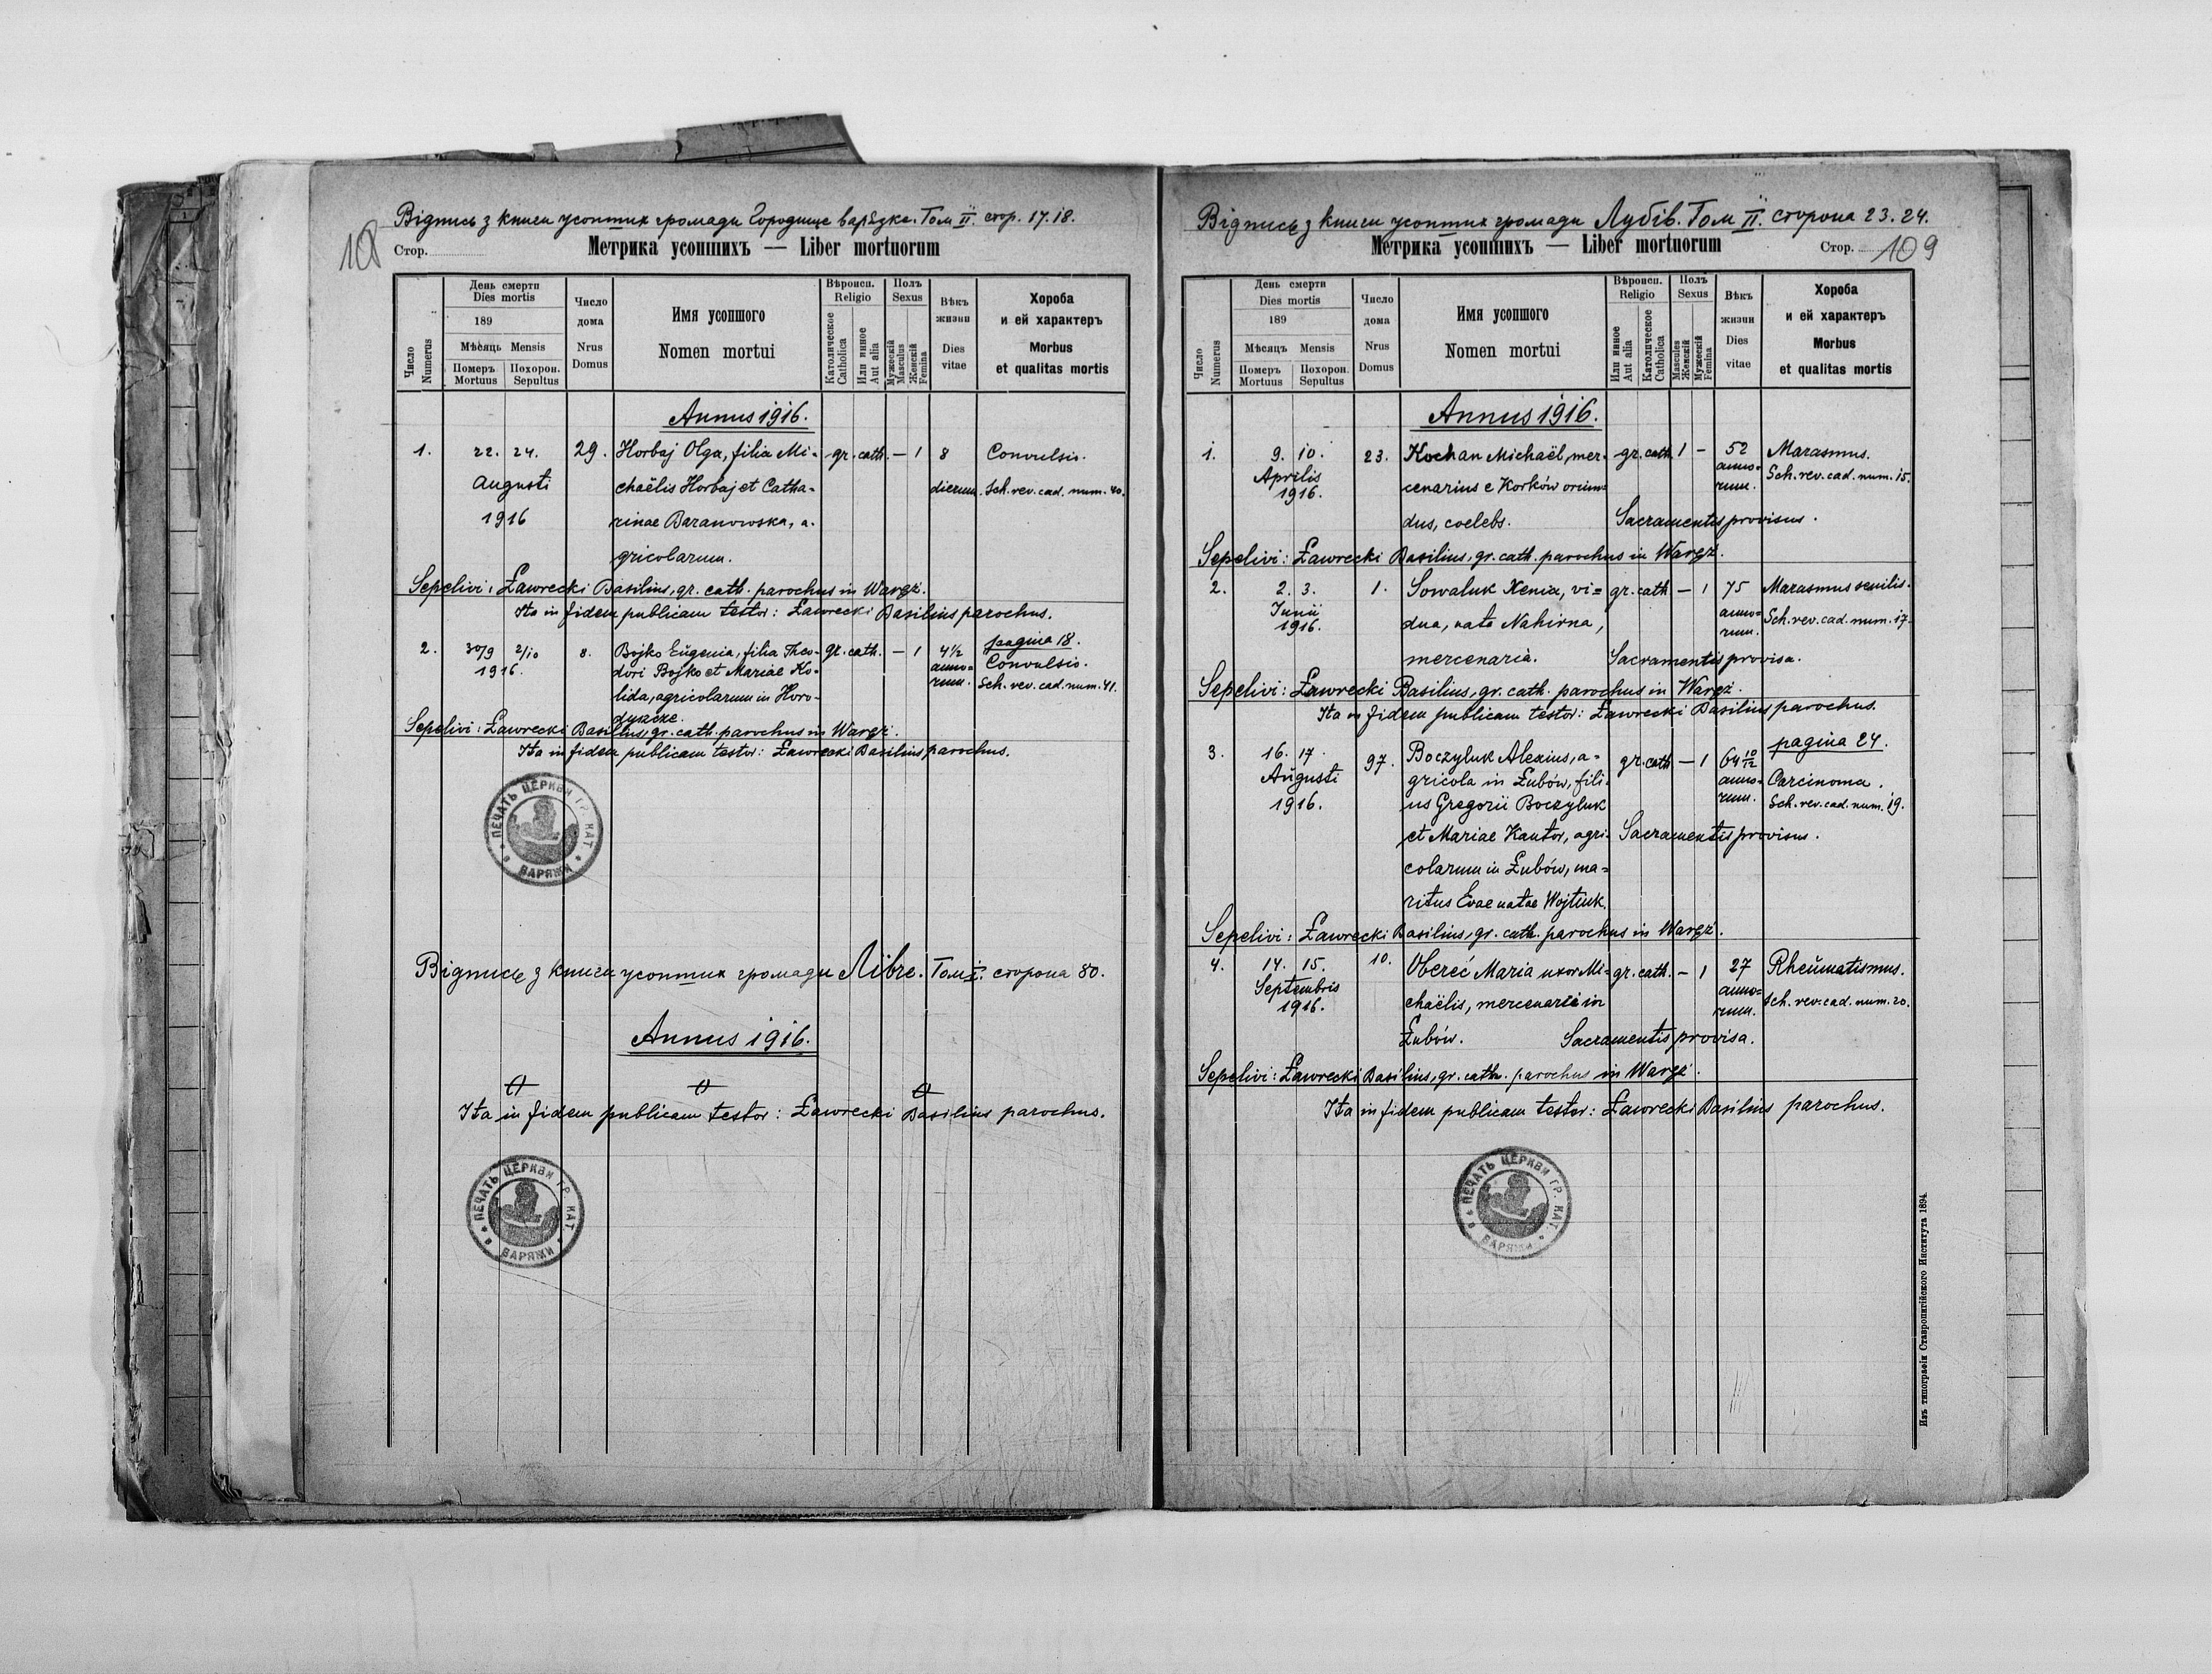 Відпись з книги усопших громади Городище варязке. Том II. стор. 17. 18.
108
Стор.
Метрика усопшихъ — Liber mortuorum
Число Numerus
День смерти
Dies mortis
189
Мѣсяць Mensis
Померъ Mortuus
Похорон. Sepultus
Число дома
Nrus Domus
Имя усопшого
Nomen mortui
Вѣроисп.
Religio
Католическое Catholica
Или инное Aut alia
Полъ
Sexus
Мужескій Masculus
Женскій Femina
Вѣкъ жизни
Dies vitae
Хороба
и ей характеръ
Morbus
et qualitas mortis
Annus 1916.
1. 22. 24. 29. Horbaj Olga, filia Mi- gr. cath. — 1 8 Convulsio.
Augusti chaëlis Horbaj et Catha= dierum. Sch. rev. cad. num. 40.
1916 rinae Baranowska, a.
gricolarum.
Sepelivi: Ławrecki Basilius, gr. cath. parochus in Waręż.
Ita in fidem publicam testor: Ławrecki Basilius parochus.
pagina 18.
2. 30/9 2/10 8. Bojko Eugenia, filia Theo- gr. cath. — 1 4 1/2 Convulsio.
1916. dori Bojko et Mariae Ko- anno=
lida, agricolarum in Horo- rum. Sch. rev. cad. num. 41.
dyszcze.
Sepelivi: Ławrecki Basilius, gr. cath. parochus in Waręż.
Ita in fidem publicam testor: Ławrecki Basilius parochus.
ПЕЧАТЬ ЦЕРКВИ ГР. КАТ. В ВАРЯЖИ
Відпись з книги усопших громади Лівче. Том I. сторона 80.
Annus 1916.
Ita in fidem publicam testor: Ławrecki Basilius parochus.
ПЕЧАТЬ ЦЕРКВИ ГР. КАТ. В ВАРЯЖИ
Відпись з книги усопших громади Лубів. Том II. сторона 23. 24.
Метрика усопшихъ — Liber mortuorum
Стор. 109
Число Numerus
День смерти
Dies mortis
189
Мѣсяцъ Mensis
Померъ Mortuus
Похорон. Sepultus
Число дома
Nrus Domus
Имя усопшого
Nomen mortui
Вѣроисп.
Religio
Или инное Aut alia
Католическое Catholica
Полъ
Sexus
Mascules Женскій
Мужескій Femina
Вѣкъ жизни
Dies vitae
Хороба
и ей характеръ
Morbus
et qualitas mortis
Annus 1916.
1. 9. 10. 23. Kochan Michaël, mer- gr. cath. 1 — 52 Marasmus.
Aprilis cenarius e Korków oriun= anno= Sch. rev. cad. num. 15.
1916. dus, coelebs. rum.
Sacramentis provisus.
Sepelivi: Ławrecki Basilius, gr. cath. parochus in Waręż.
2. 2. 3. 1. Sowaluk Xenia, vi= gr. cath — 1 75 Marasmus senilis.
Junii dua, nata Nahirna, anno= Sch. rev. cad. num. 17.
1916. mercenaria. rum.
Sacramentis provisa.
Sepelivi: Ławrecki Basilius, gr. cath. parochus in Waręż.
Ita in fidem publicam testor: Ławrecki Basilius parochus.
pagina 24.
3. 16. 17. 97. Boczyluk Alexius, a= gr. cath — 1 64 10/12 Carcinoma.
Augusti gricola in Łubów, fili= anno= Sch. rev. cad. num. 19.
1916. us Gregorii Boczyluk rum.
et Mariae Kantor, agri= Sacramentis provisus.
colarum in Łubów, ma=
ritus Evae natae Wojtiuk.
Sepelivi: Ławrecki Basilius, gr. cath. parochus in Waręż.
4. 14. 15. 10. Obereć Maria uxor Mi= gr. cath. — 1 27 Rheumatismus.
Septembris chaëlis, mercenarii in anno= Sch. rev. cad. num. 20.
1916. Łubów. rum.
Sacramentis provisa.
Sepelivi: Ławrecki Basilius, gr. cath. parochus in Waręż.
Ita in fidem publicam testor: Ławrecki Basilius parochus.
ПЕЧАТЬ ЦЕРКВИ ГР. КАТ. В ВАРЯЖИ
Изъ типографіи Ставропигійского Института 1894.